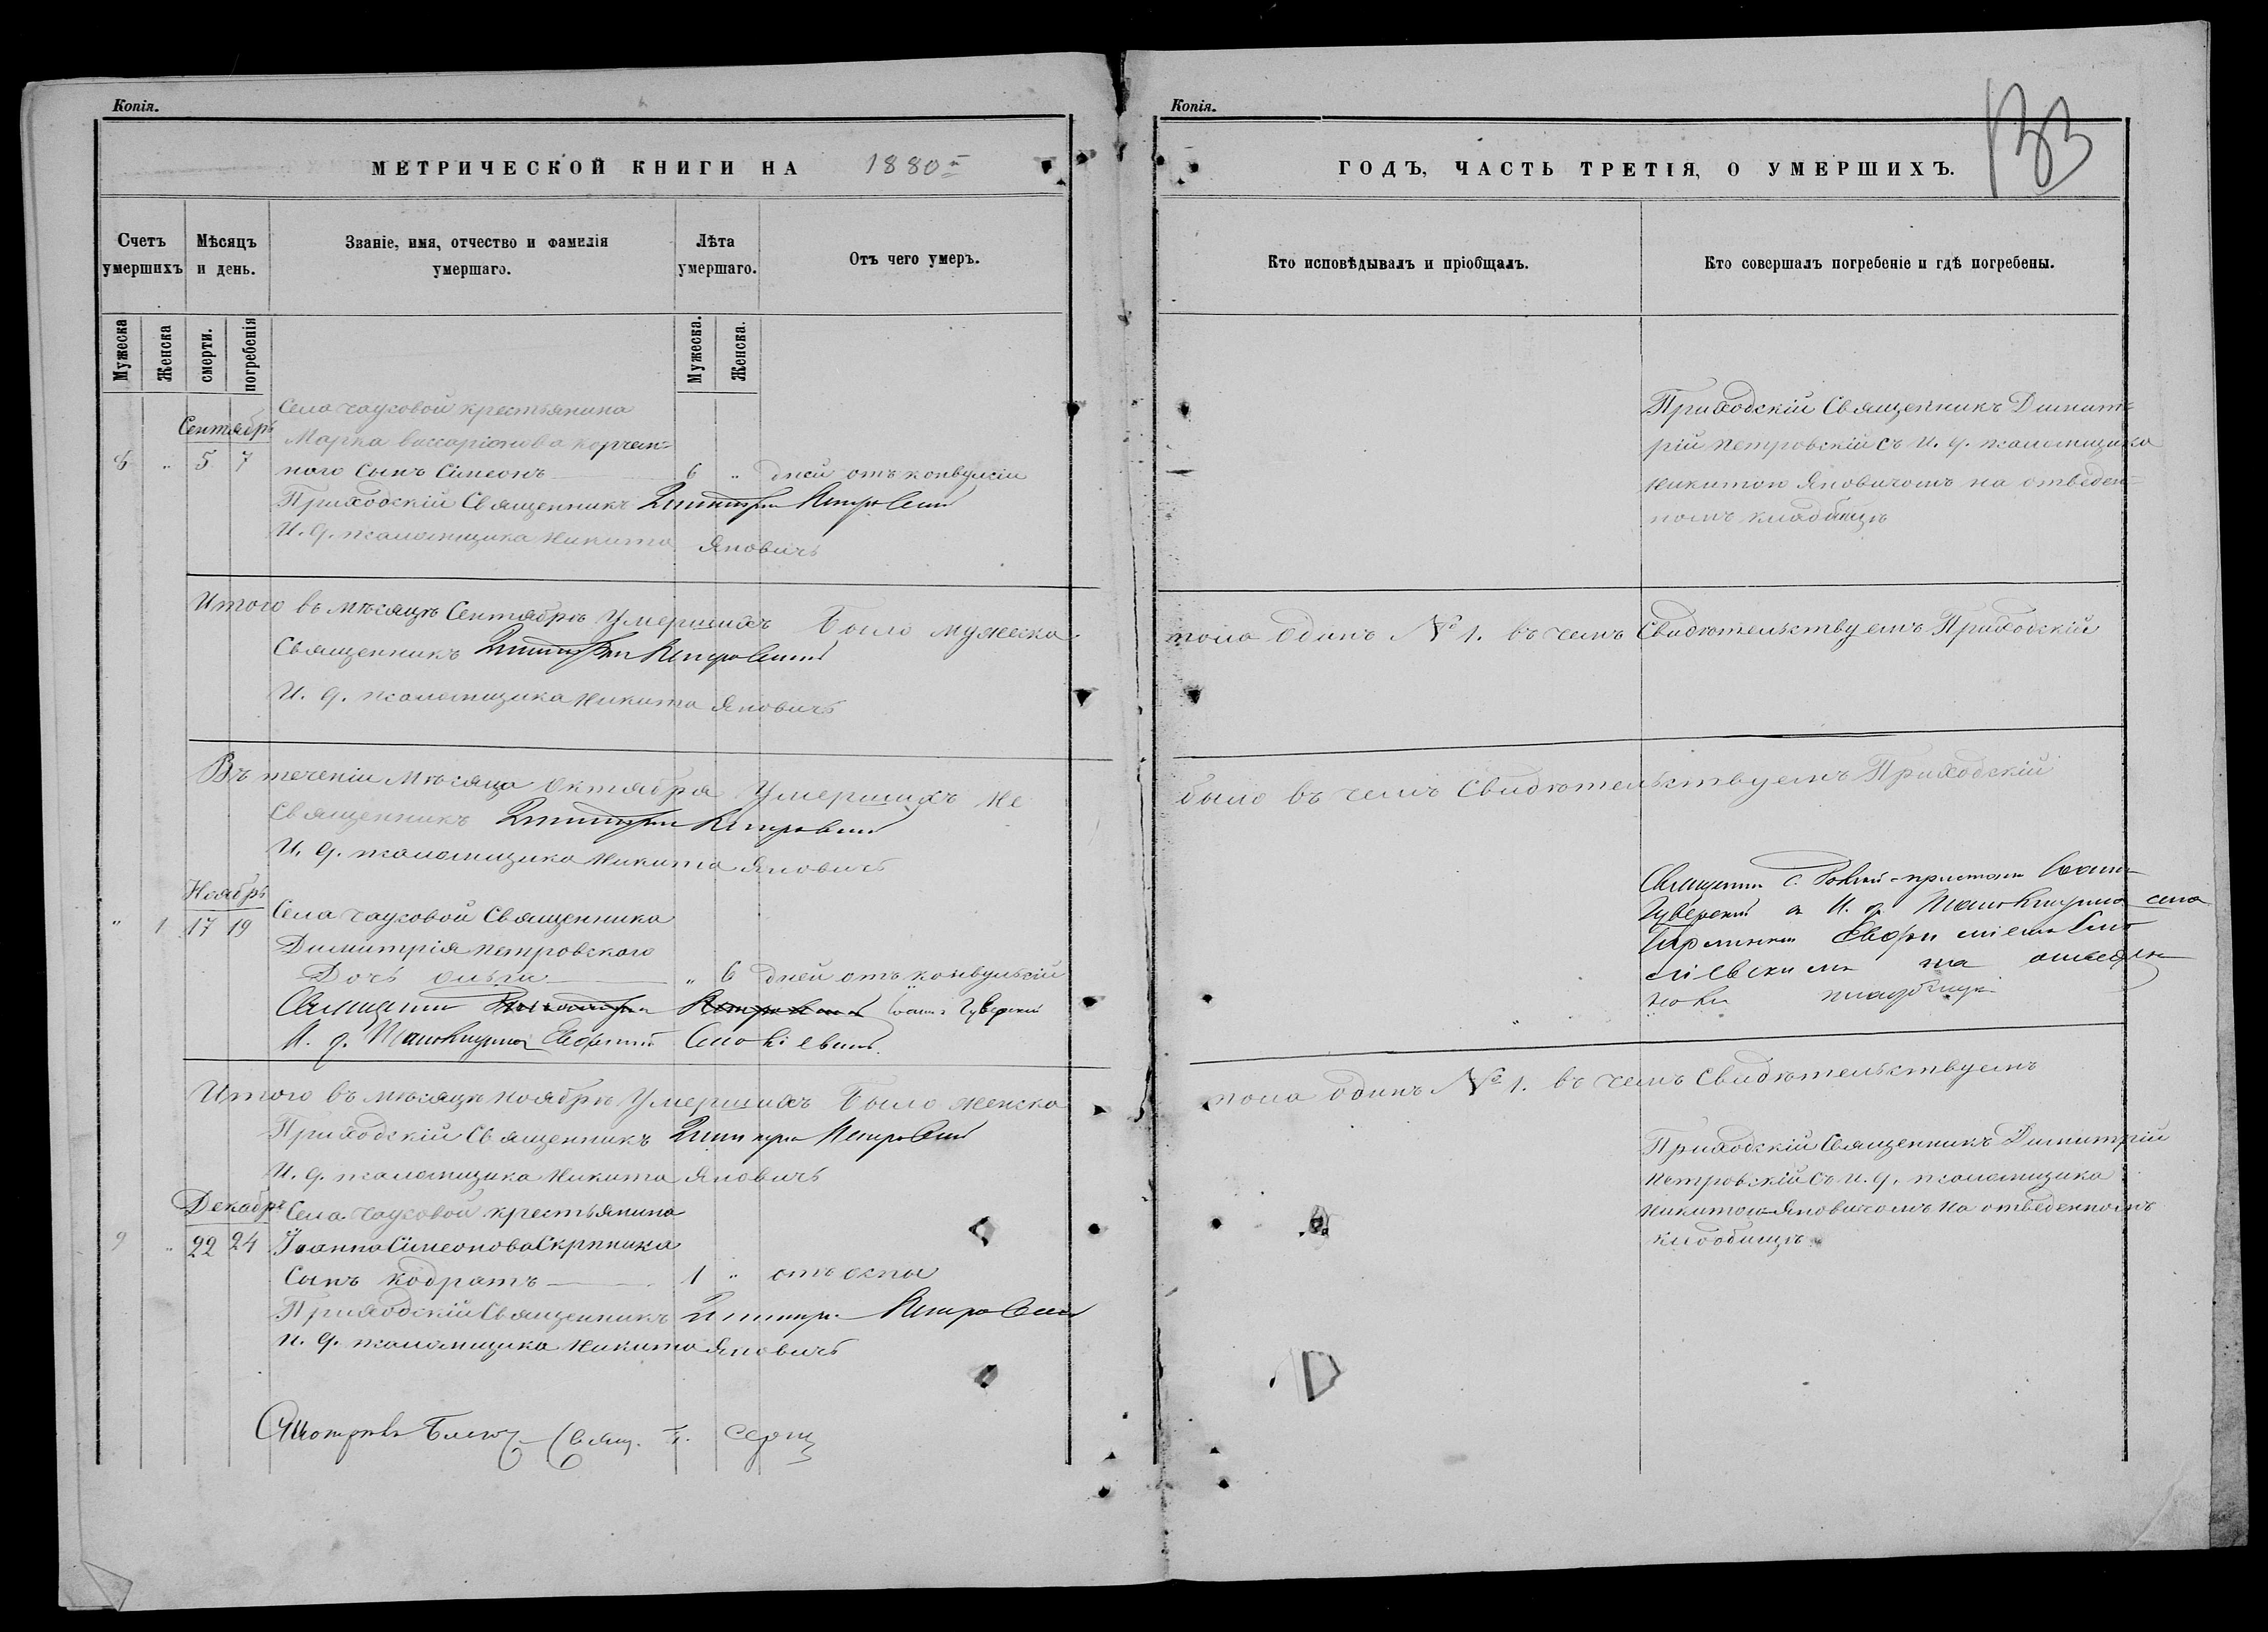 Копія.
МЕТРИЧЕСКОЙ КНИГИ НА 1880
Счетъ умершихъ
Мѣсяцъ и день.
Званіе, имя, отчество и фамилія умершаго.
Лѣта умершаго.
Отъ чего умеръ.
Мужеска
Женска
смерти.
погребенія
Мужеска.
Женска.
Сентябрь
Села Чаусовой крестьянина
Марка Виссаріонова
8 " 5 7 ного Сынъ Симеонъ 6 " дней отъ конвулсіи
Приходскій Священникъ Димитрій Петровскій
И. д. псаломщика Никита Яновичъ
Итого въ мѣсяцѣ Сентябрѣ Умершихъ было мужеска
Священникъ Димитрій Петровскій
И. д. псаломщика Никита Яновичъ
Въ теченіи Мѣсяца Октября Умершихъ не
Священникъ Димитрій Петровскій
И. д. псаломщика Никита Яновичъ
Ноябрь
" 1 17 19 Села Чаусовой Священника
Димитрія Петровского
Дочь Ольга " 6 дней отъ конвульсій
Священникъ Петровскій Іоаннъ Гуверскій
И. д. Псаломщика
Итого въ мѣсяцѣ Ноябрѣ Умершихъ было женска
Приходскій Священникъ Димитрій Петровскій
И. д. псаломщика Никита Яновичъ
Декабрь
Села Чаусовой крестьянина
9 " 22 24 Іоанна Симеонова Скрипника
Сынъ Кодратъ 1 " отъ оспы
Приходскій Священникъ Димитрій Петровскій
И. д. псаломщика Никита Яновичъ
Копія.
133
ГОДЪ, ЧАСТЬ ТРЕТІЯ, О УМЕРШИХЪ.
Кто исповѣдывалъ и пріобщалъ.
Кто совершалъ погребеніе и гдѣ погребены.
Приходскій Священникъ Димит=
рій Петровскій съ И. д. псаломщика
Никитою Яновичомъ на отведен=
номъ кладбищѣ
пола одинъ № 1. въ чемъ Свидѣтельствуемъ Приходскій
было въ чемъ Свидѣтельствуемъ Приходскій
Священникъ с. Іоаннъ
Гуверскій И. д. Псаломщика села
на
кладбищѣ
пола одинъ № 1. въ чемъ Свидѣтельствуемъ
Приходскій Священникъ Димитрій
Петровскій съ И. д. псаломщика
Никитою Яновичомъ на отведенномъ
кладбищѣ